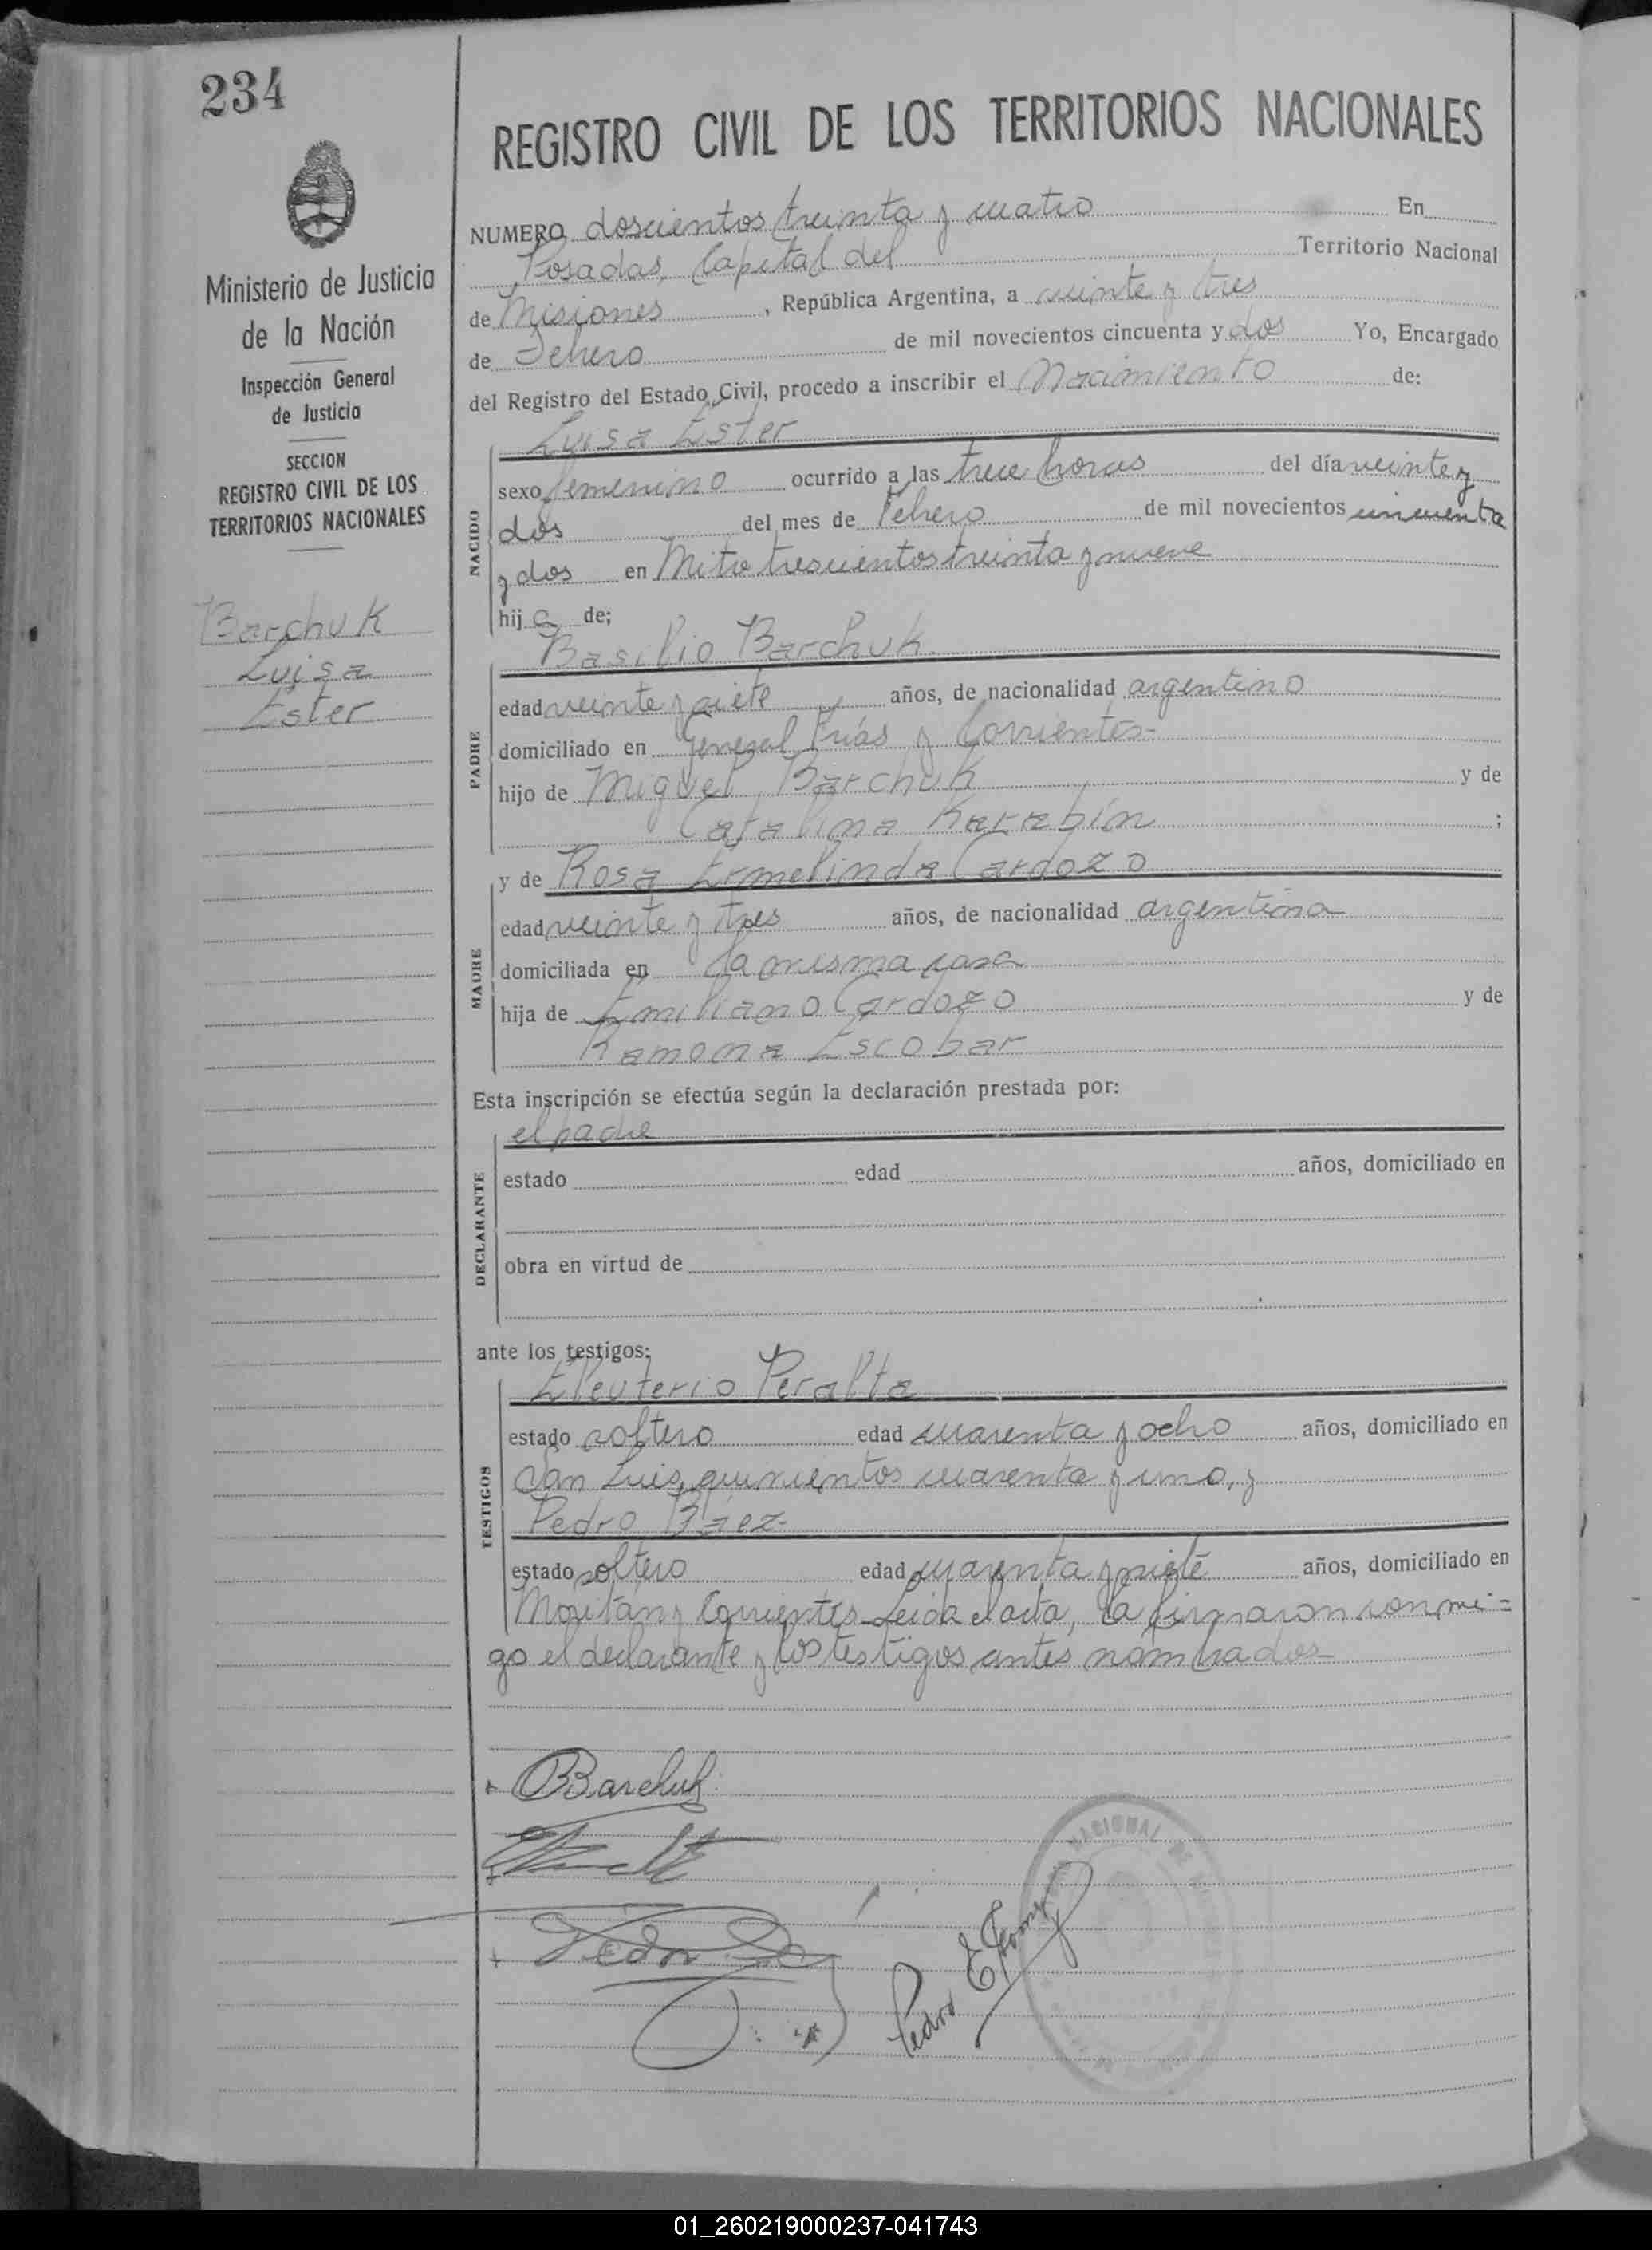 234
Ministerio de Justicia
de la Nación
Inspección General
de Justicia
SECCION
REGISTRO CIVIL DE LOS
TERRITORIOS NACIONALES
Barchuk
Luisa
Ester
REGISTRO CIVIL DE LOS TERRITORIOS NACIONALES
NUMERO doscientos treinta y cuatro En
Posadas, Capital del Territorio Nacional
de Misiones, República Argentina, a veinte y tres
de Febrero de mil novecientos cincuenta y dos Yo, Encargado
del Registro del Estado Civil, procedo a inscribir el Nacimiento de:
Luisa Ester
NACIDO
sexo femenino ocurrido a las trece horas del día veinte y
dos del mes de Febrero de mil novecientos cincuenta
y dos en Mitre trescientos treinta y nueve
hija de;
Basilio Barchuk
PADRE
edad veinte y siete años, de nacionalidad argentino
domiciliado en General Frías y Corrientes-
hijo de Miguel Barchuk y de
Catalina Karabín ;
y de Rosa Ermelinda Cardozo
MADRE
edad veinte y tres años, de nacionalidad argentina
domiciliada en la misma casa
hija de Emiliano Cardozo y de
Ramona Escobar
Esta inscripción se efectúa según la declaración prestada por:
el padre
DECLARANTE
estado edad años, domiciliado en
obra en virtud de
ante los testigos:
Eleuterio Peralta
TESTIGOS
estado soltero edad cuarenta y ocho años, domiciliado en
San Luis, quinientos cuarenta y uno, y
Pedro Báez-
estado soltero edad cuarenta y siete años, domiciliado en
y Corrientes-Leida el acta, la firmaron conmi=
go el declarante y los testigos antes nombrados-
BBarchuk
Pedro
Pedro E
NACIONAL DE
01_260219000237-041743